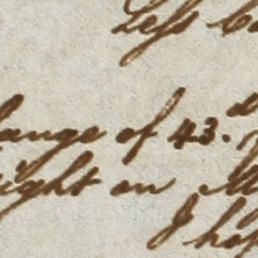 Less
hange of 43.d
ight on
I hop